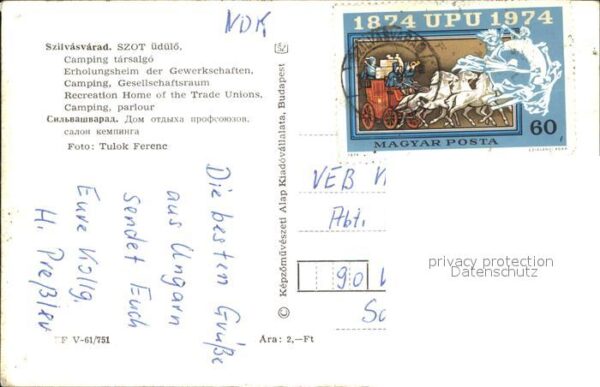 NDK
Szilvásvárad. SZOT üdülő,
Camping társalgó
Erholungsheim der Gewerkschaften,
Camping, Gesellschaftsraum
Recreation Home of the Trade Unions,
Camping, parlour
Сильвашварад. Дом отдыха профсоюзов,
салон кемпинга
Foto: Tulok Ferenc
Die besten Grüße
aus Ungarn
sendet Euch
Eure Kollg.
H. Preßler
V-61/751
Ára: 2,—Ft
© Képzőművészeti Alap Kiadóvállalata, Budapest
1874 UPU 1974
60
MAGYAR POSTA
VEB
Abt.
90
privacy protection
Datenschutz